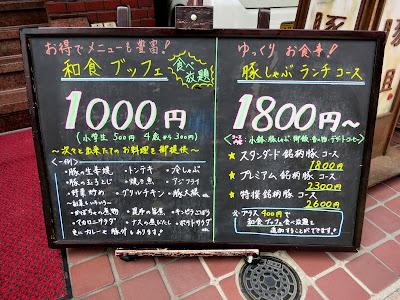 お得でメニューも豊富!
和食 ブッフェ
食べ放題
1000円
(小学生 500円 4歳から300円)
〜次々と出来たてのお料理を御提供〜
〜一例〜
・豚の生姜焼 ・トンテキ ・冷しゃぶ
・豚の玉子とじ ・焼き魚 ・アジフライ
・野菜炒め ・グリルチキン ・豚大根
・かぼちゃの煮物 ・昆布の旨煮 ・キンピラごぼう
・マカロニサラダ ・ナスの煮びたし ・ポテトサラダ
更にカレーや豚汁もあります!
ゆっくり お食事!
豚しゃぶ ランチコース
1800円〜
★ スタンダード銘柄豚コース
1800円
★ プレミアム銘柄豚コース
2300円
★ 特撰銘柄豚コース
2600円
プラス400円で
和食ブッフェ食べ放題を
追加することができます!
豚